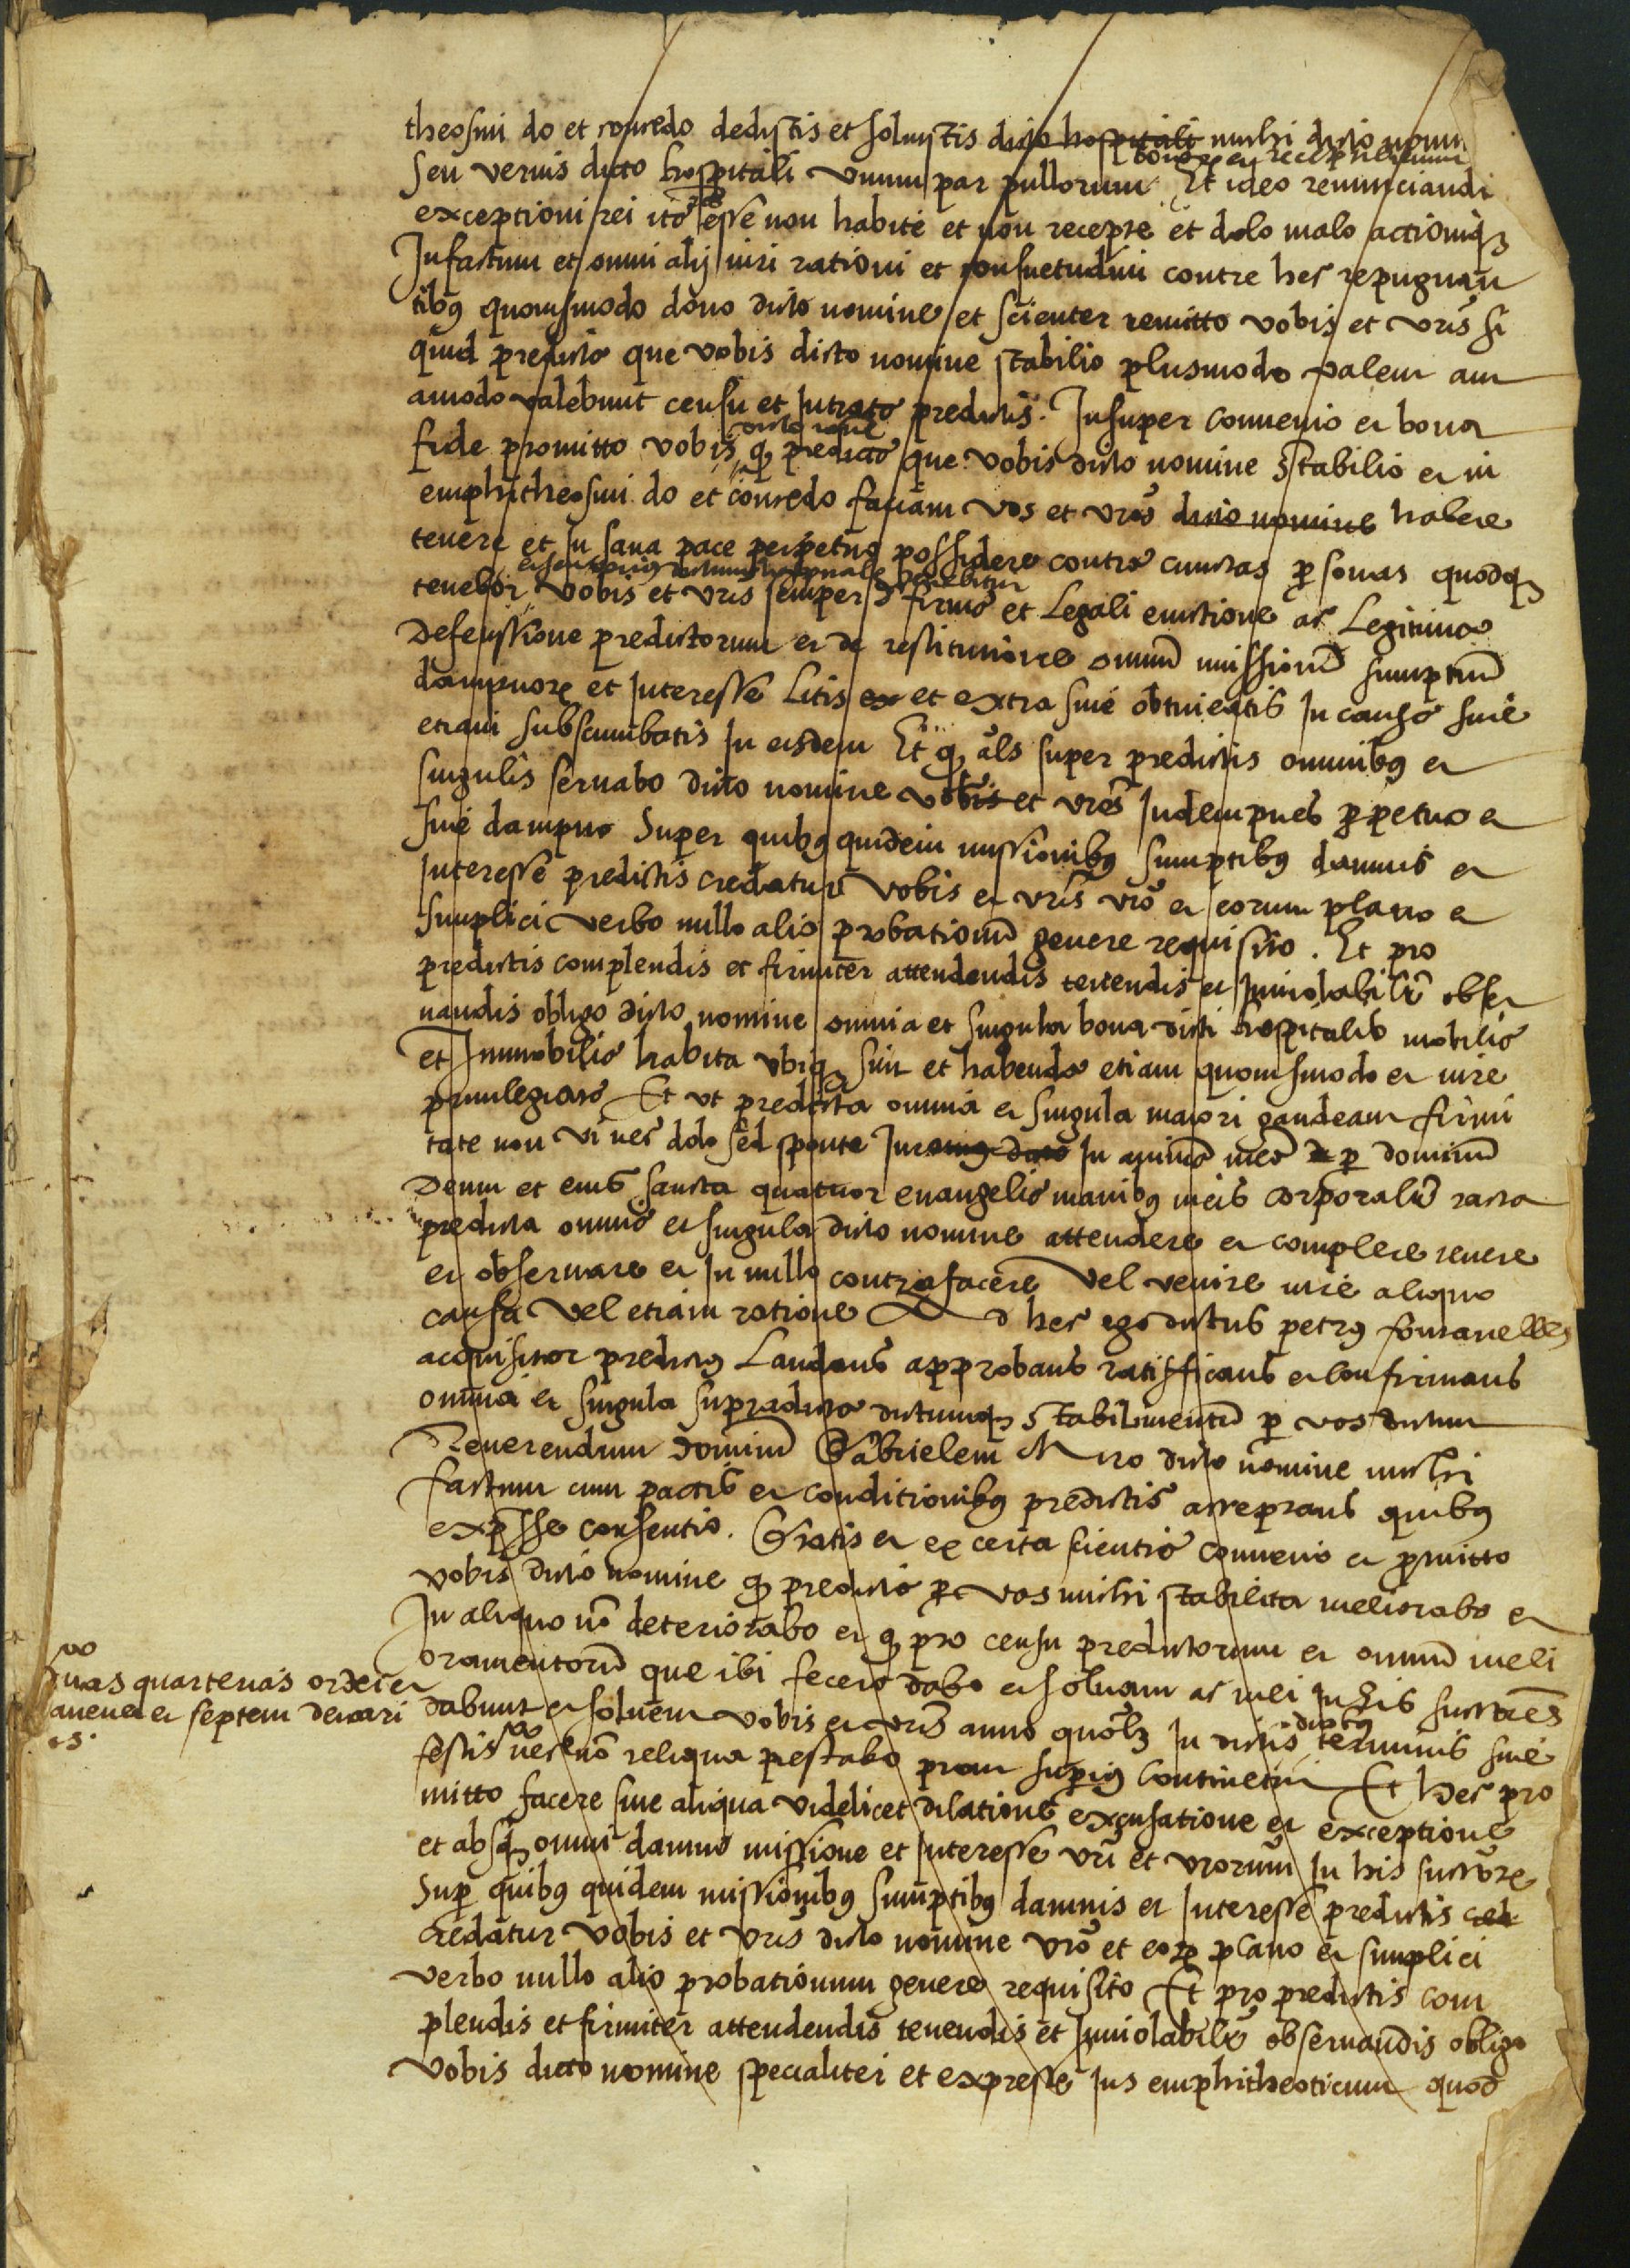 theosim do et concedo dedistis et solvistis dicto hospitali michi dicto nomin
seu verius dicto hospitali unum par pullorum Et ideo renunciandi
exceptioni rei ita esse non habite et non recepte et dolo malo actioniq3
Infactum et omni alij iuri rationi et consuetudini contre hec repugnan
tib9 quovismodo dono dicto nomine et scienter remitto vobis et vris si
quid predicta que vobis dicto nomine stabilio plusmodo valem aut
amodo valebunt censu et Intrata predictis. Insuper convenio et bona
dicto noie
fide promitto vobis q3 predicta que vobis dicto nomine stabilio et in
emphitheosim do et concedo faciam vos et vros dicto nomine habere
tenere et In sana pace perpetuo possidere contra cunctas psonas quodq3
tenebor vobis et vris semper d firma et Legali evictione ac Legitima
Defenssione predictorum et de restitucione omniu missionu sumptuu
dampnor et Interesse Litis ex et extra sive obtineatis In causa sive
etiam subscumbatis In eisdem Et q3 als super predictis omnibus et
singulis servabo dicto nomine vobis et vros Indempnes ppetuo et
sine dampno Super quib9 quidem missionib9 sumptib9 damnis et
Interesse predictis credatur vobis et vris vro et eorum plano et
simplici verbo nullo alio probationu genere requisito. Et pro
predictis complendis et firmiter attendendis tenendis et Inviolabilr obser
vandis obligo dicto nomine omnia et singula bona dicti hospitalis mobilia
et Immobilia habita ubiq3 sint et habenda etiam quovismodo et iure
privilegiata Et ut predicta omnia et singula maiori gaudeant firmi
tate non vi nec dolo sed sponte Iuro In animo meo p dominu
Deum et eius sancta quatuor evangelia manib9 meis corporalr tacta
predicta omnia et singula dicto nomine attendere et complere tenere
et observare et In nullo contrafacere vel venire iure aliquo
causa vel etiam ratione Ad hec ego dictus petrus fontanelles
acquisitor predict9 Laudans approbans ratifficans et confirmans
omnia et singula supradicta dictumq3 stabilimentu p vos dictum
Reverendum dominu Gabrielem Miro dicto nomine michi
factum cum pactis et conditionib9 predictis acceptans quibus
expsse consentio. Gratis et ex certa scientia convenio et pmitto
vobis dicto nomine q3 predicta p vos michi stabilita meliorabo et
In aliquo no deteriorabo et q3 pro censu predictorum et omniu meli
oramentoru que ibi fecero dabo et solvam ac mei In his succres
duas quartenas ordei et
avene et septem denari
os.
dabunt et solvent vobis et vris anno quolz In dictis terminis sive
festis nec no reliqua prestabo prout superi9 continetur Et hec pro
mitto facere sine aliqua videlicet dilatione excusatione et exceptione
et absq3 omni damno missione et Interesse vri et vrorum In his succor
Sup quib9 quidem missionib9 sumptib9 damnis et Interesse predictis
credatur vobis et vris dicto nomine vro et eor plano et simplici
verbo nullo alio probationum genere requisito Et pro predictis com
plendis et firmiter attendendis tenendis et Inviolabilr observandis obligo
vobis dicto nomine specialiter et expresse Ius emphitheoticum quod